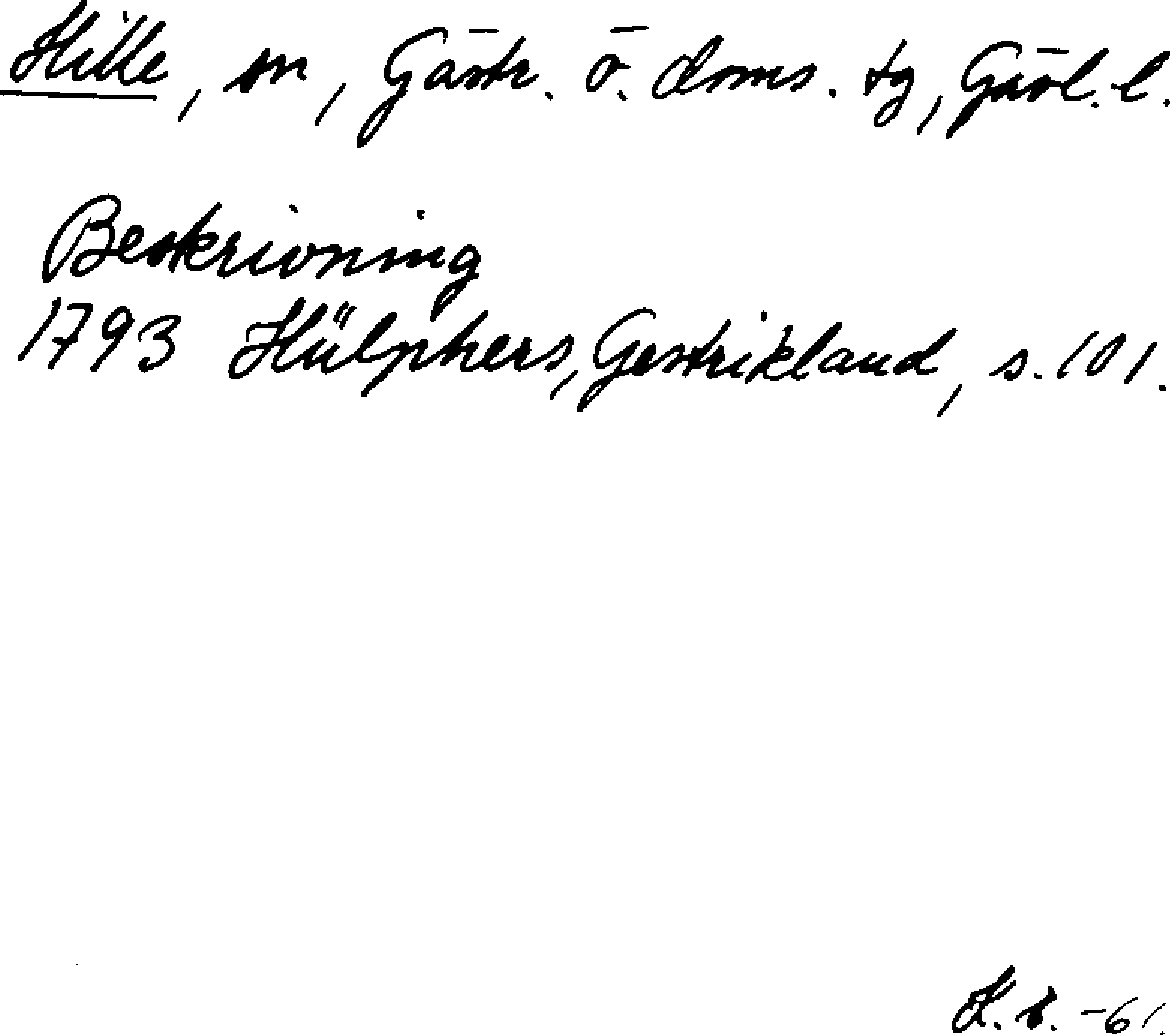 Hille, sn, Gästr. ö. doms. tg, Gävl. l.
Beskrivning
1793 Hülphers, Gestrikland, s. 101.
-61